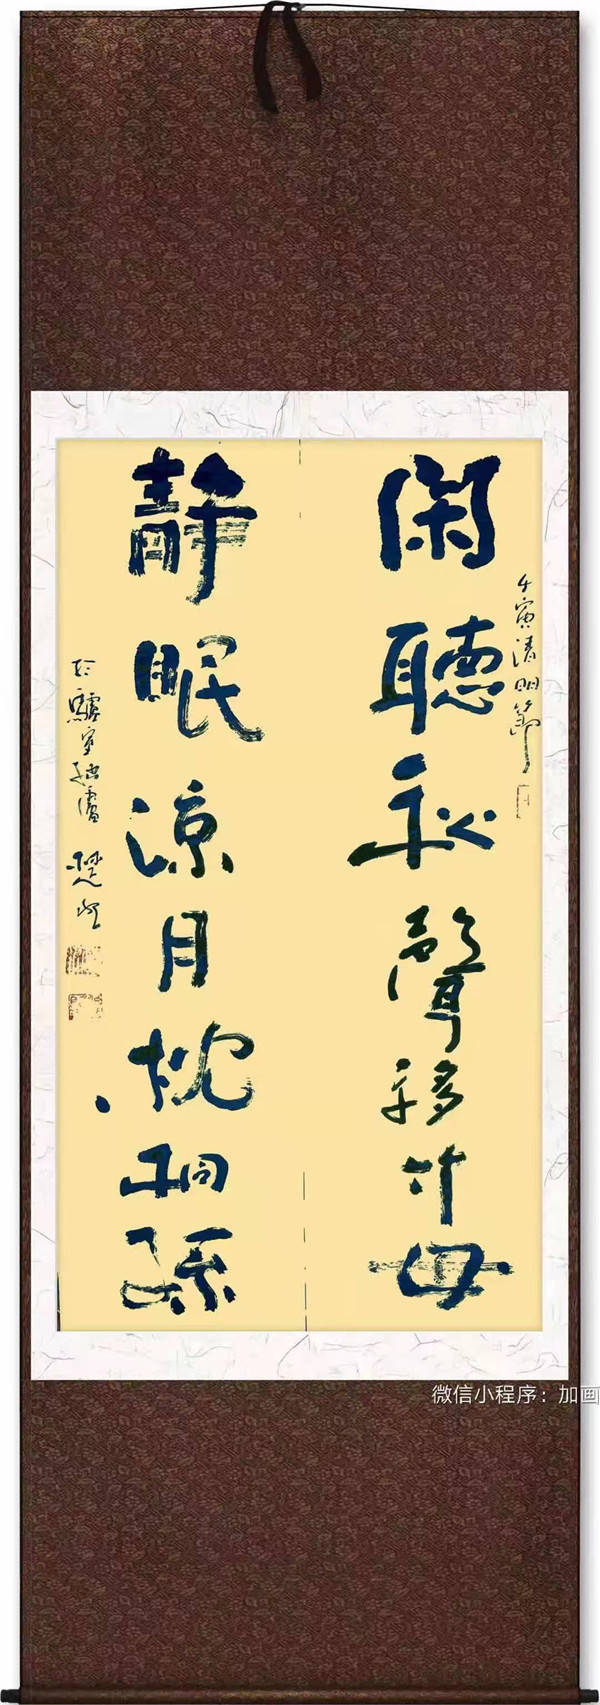 閑聽秋聲移竹母
靜眠涼月枕桐孫
壬寅清明節
微信小程序：加画